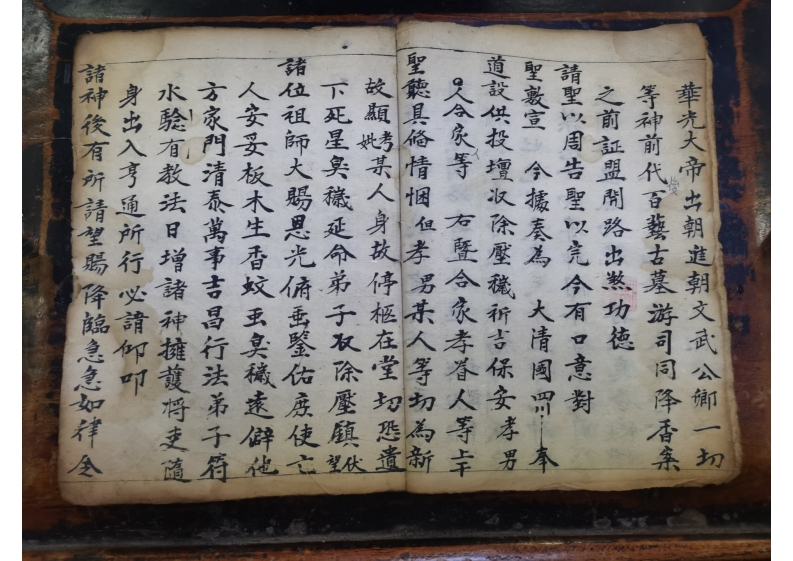 華光大帝出朝進朝文武公卿一切
等神前代百藝古墓游司同降香案
之前証盟開路出煞功德
請聖以周告聖以完今有口意對
聖敷宣 今據奏為 大清國四川 奉
道設供投壇收除壓穢祈吉保安孝男
人合家等 右暨合家孝眷人等上干
聖聽具俻情悃但孝男某人等切為新
故顯考妣某人身故停柩在堂切恐遺
下死星臭穢延命弟子收除壓鎮伏望
諸位祖師大賜恩光俯垂鑒佑庻使亡
人安妥板木生香蚊虫臭穢遠僻他
方家門清泰萬事吉昌行法弟子符
水驗有教法日增諸神擁護将吏隨
身出入亨通所行必請仰叩
諸神後有所請望賜降臨急急如律令